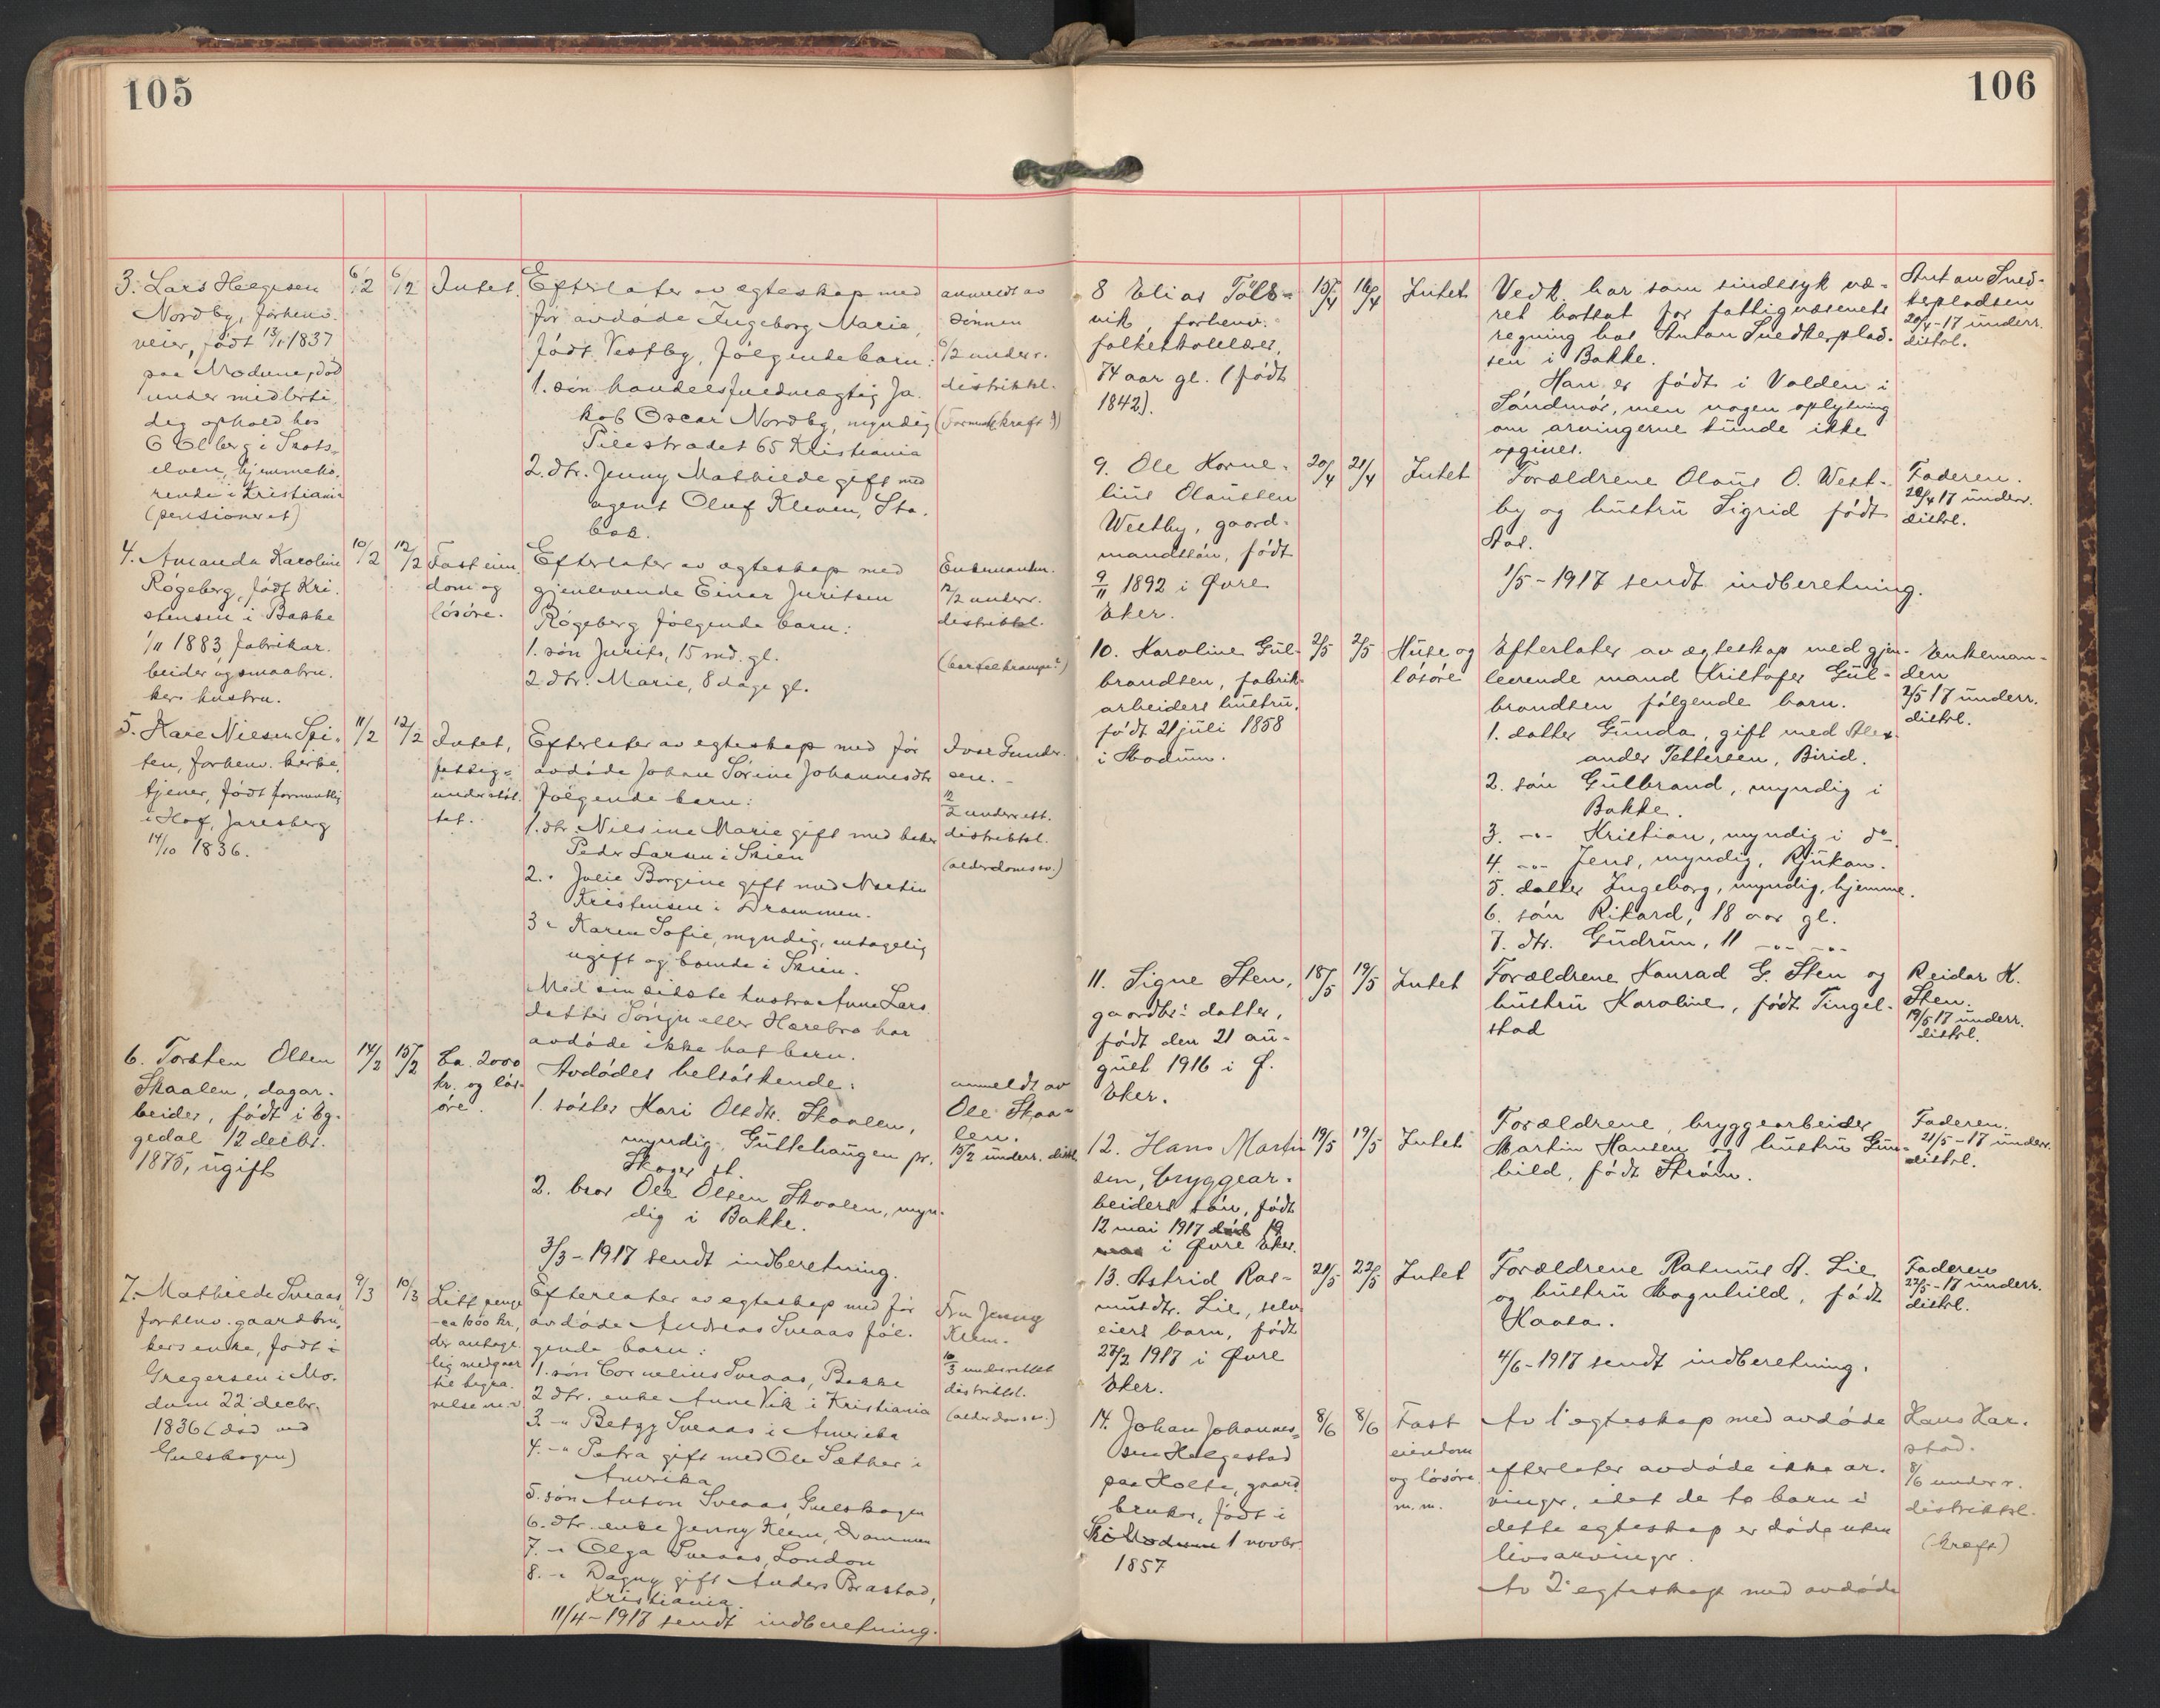 105
3. Lars Helgesen
Nordby, forhenv.
veier, født 13/1 1837
paa Modum, død
under midlerti
dig ophold hos
O Elberg i Skots-
elven, hjemmehø-
rende i Kristiania
(pensioneret)
6/2
6/2
Intet.
Efterlater av egteskap med
før avdøde Ingeborg Marie,
født Vestby, følgende barn:
1. søn handelsfuldmægtig Ja-
kob Oscar Nordby, myndig
Pilestrædet 65 Kristiania
2. dtr. Jenny Mathilde gift med
agent Oluf Kleven, Sta-
bæk.
anmeldt av
sønnen
6/2 underr.
distriktsl.
4. Amanda Karoline
Røgeberg, født Kri-
stensen i Bakke
1/11 1883, fabrikar-
beider og smaabru-
kers hustru.
10/2
12/2
Fast eien
dom og
løsøre.
Efterlater av egteskap med
gjenlevende Einar Juritsen
Røgeberg følgende barn:
1. søn Jurits, 15 md. gl.
2 dtr. Marie, 8 dage gl.
Enkemanden.
12/2 underr.
distriktsl.
(barselkrampe?)
5. Hans Nielsen Spi-
ten, forhenv. kirke-
tjener, født formentlig
i Hof, Jarlsberg
14/10 1836.
11/2
12/2
Intet,
fattig-
understøt-
tet.
Efterlater av egteskap med før
avdøde Johane Sørine Johannesdtr
følgende barn:
1. dtr. Nielsine Marie gift med baker
Peder Larsen i Skien
2. " Julie Borgine gift med Martin
Kristensen i Drammen.
3 " Karen Sofie, myndig, antagelig
ugift og boende i Skien.
Med sin sidste hustru Anne Lars
datter Sønju eller Harebro har
avdøde ikke hat barn.
Ivar Gunder-
sen.-
12/2 underrett.
distriktsl.
(alderdomssv.)
6. Torsten Olsen
Skaalen, dagar-
beider, født i Eg-
gedal 12 decbr.
1875, ugift
14/2
15/2
Ca. 2000
kr. og løs-
øre.
Avdødes helsøskende:
1. søster Kari Olsdtr. Skaalen,
myndig, Guttehaugen pr.
Skoger st.
2. bror Ole Olsen Skaalen, myn-
dig i Bakke.
3/3-1917 sendt indberetning.
anmeldt av
Ole Skaa-
len.
15/2 underr. distl.
7. Mathilde Sveaas,
forhenv. gaardbru-
kers enke, født i
Gregersen i Mo-
dum 22 decbr.
1836 (død ved
Gulskogen)
9/3
10/3
Litt penge
-ca 1000 kr.,
der antage-
lig medgaar
til begra-
velse m.v
Efterlater av egteskap med før
avdøde Andreas Sveaas føl-
gende barn:
1. søn Cornelius Sveaas, Bakke
2 dtr. enke Anne Vik i Kristiania
3. -" Betzy Sveaas i Amerika
4. -" Petra gift med Ole Sæther i
Amerika
5. søn Anton Sveaas, Gulskogen
6. dtr. enke Jenny Klem, Drammen
7. -" Olga Sveaas, London
8. -" Dagny gift Anders Brastad,
Kristiania.
11/4-1917 sendt indberetning.
Fru Jenny
Klem.
10/3 underrettet
distriktsl.
(alderdomssv.)
106
8 Elias Tolls-
vik, forhenv.
folkeskolelærer,
74 aar gl. (født
1842).
15/4
16/4
Intet
Vedk. har som sindssyk væ-
ret bortsat for fattigvæsenets
regning hos Anton Snedkerplad-
sen i Bakke.
Han er født i Volden i
Søndmør, men nogen oplysning
om arvingerne kunde ikke
opgives.
Anton Sned-
kerpladsen
20/4-17 underr.
distsl.
9. Ole Korne-
lius Olaussen
Westby, gaard-
mandssøn, født
9/11 1892 i Øvre
Eker.
20/4
21/4
Intet
Forældrene Olaus O. West-
by og hustru Sigrid født
Aas.
1/5-1917 sendt indberetning.
Faderen.
28/4 17 underr.
distsl.
10. Karoline Gul-
brandsen, fabrik-
arbeiders hustru,
født 21 juli 1858
i Modum.
2/5
2/5
Huse og
løsøre
Efterlater av ægteskap med gjen-
levende mand Kristofer Gul-
brandsen følgende barn.
1. datter Gunda, gift med Alex
ander Pettersen, Birid.
2. søn Gulbrand, myndig i
Bakke.
3. -"- Kristian, myndig i do-
4. -"- Jens, myndig, Rjukan.
5. datter Ingeborg, myndig, hjemme.
6. søn Rikard, 18 aar gl.
7. dtr. Gudrun, 11 -"- -"-
Enkeman-
den
2/5 17 underr.
distsl.
11. Signe Steen,
gaardbr: datter,
født den 21 au-
gust 1916 i Ø.
Eker.
18/5
19/5
Intet
Forældrene Konrad G. Steen og
hustru Karoline, født Tingel-
stad
Reidar K.
Steen.
19/5 17 underr.
distsl.
12. Hans Martin
sen, bryggear-
beiders søn, født
12 mai 1917
i Øvre Eker.
19/5
19/5
Intet
Forældrene, bryggearbeider
Martin Hansen og hustru Gun-
hild, født Strøm.
Faderen.
21/5-17 underr.
distsl.
13. Astrid Ras-
musdtr. Lie, selv
eiers barn, født
27/2 1917 i Øvre
Eker.
21/5
22/5
Intet
Forældrene Rasmus A. Lie
og hustru Magnhild, født
Kaasa.
4/6-1917 sendt indberetning.
Faderen
22/5-17 underr.
distsl.
14. Johan Johannes-
sen Helgestad
paa Holte, gaard
bruker, født i
Modum 1 novbr.
1857
8/6
8/6
Fast
eiendom
og løsøre
m.m.
Av 1' egteskap med avdøde
efterlater avdøde ikke ar-
vinger, idet de to barn i
dette egteskap er døde uten
livsarvinger.
Av 2' egteskap med avdøde
Hans Har-
stad.
8/6 underr.
distriktsl.
(kræft)